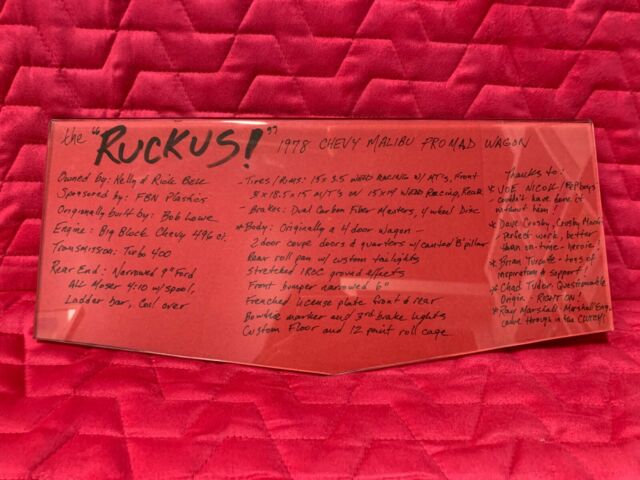 the "RUCKUS!" 1978 CHEVY MALIBU PROMAD WAGON
Owned by: Kelly & Rick Bell
Sponsored by: FBN Plastics
Originally built by: Bob Lowe
Engine: Big Block Chevy 496 ci.
Transmission: Turbo 400
Rear End: Narrowed 9" Ford
All Moser 4:10 w/spool,
Ladder bar, Coil over
- Tires/Rims: 15 x 3.5 WELD RACING W/ MT's, Front
x 18.5 x 15 M/T's on 15x14 Weld Racing, Rear
- Brakes: Dual Carbon Fiber Masters, 4 wheel Disc
*Body: Originally a 4 door wagon -
2 door coupe doors & quarters w/ canted 'B' pillar
Rear roll pan w/ custom taillights
Stretched IROC ground effects
Front bumper narrowed 6"
Frenched license plate front & rear
Bowtie marker and 3rd brake lights
Custom Floor and 12 point roll cage
Thanks to:
* JOE NICOLL / PEPboys
couldn't have done it
without him!
* Dave Crosby, Crosby Machine
perfect work, better
than on-time - heroic!
* Brian - tons of
inspiration & support!
* Chad Tudor, Questionable
Origin - RIGHT ON!
* Ray Marshall - Marshall Eng.
came through in the CLUTCH!